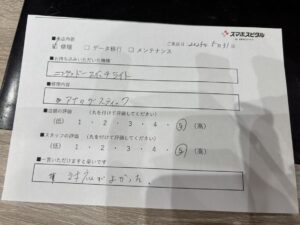 スマホスピタル
■来店内容
☑修理 □データ移行 □メンテナンス
ご来店日：2025年5月31日
■お持ち込みいただいた機種
ニンテンドースイッチライト
■修理内容
アナログスティック
■店舗の評価 (丸を付けて評価してください)
(低) 1・2・3・4・5 (高)
■スタッフの評価 (丸を付けて評価してください)
(低) 1・2・3・4・5 (高)
■一言いただけますと幸いです
対応がよかった。